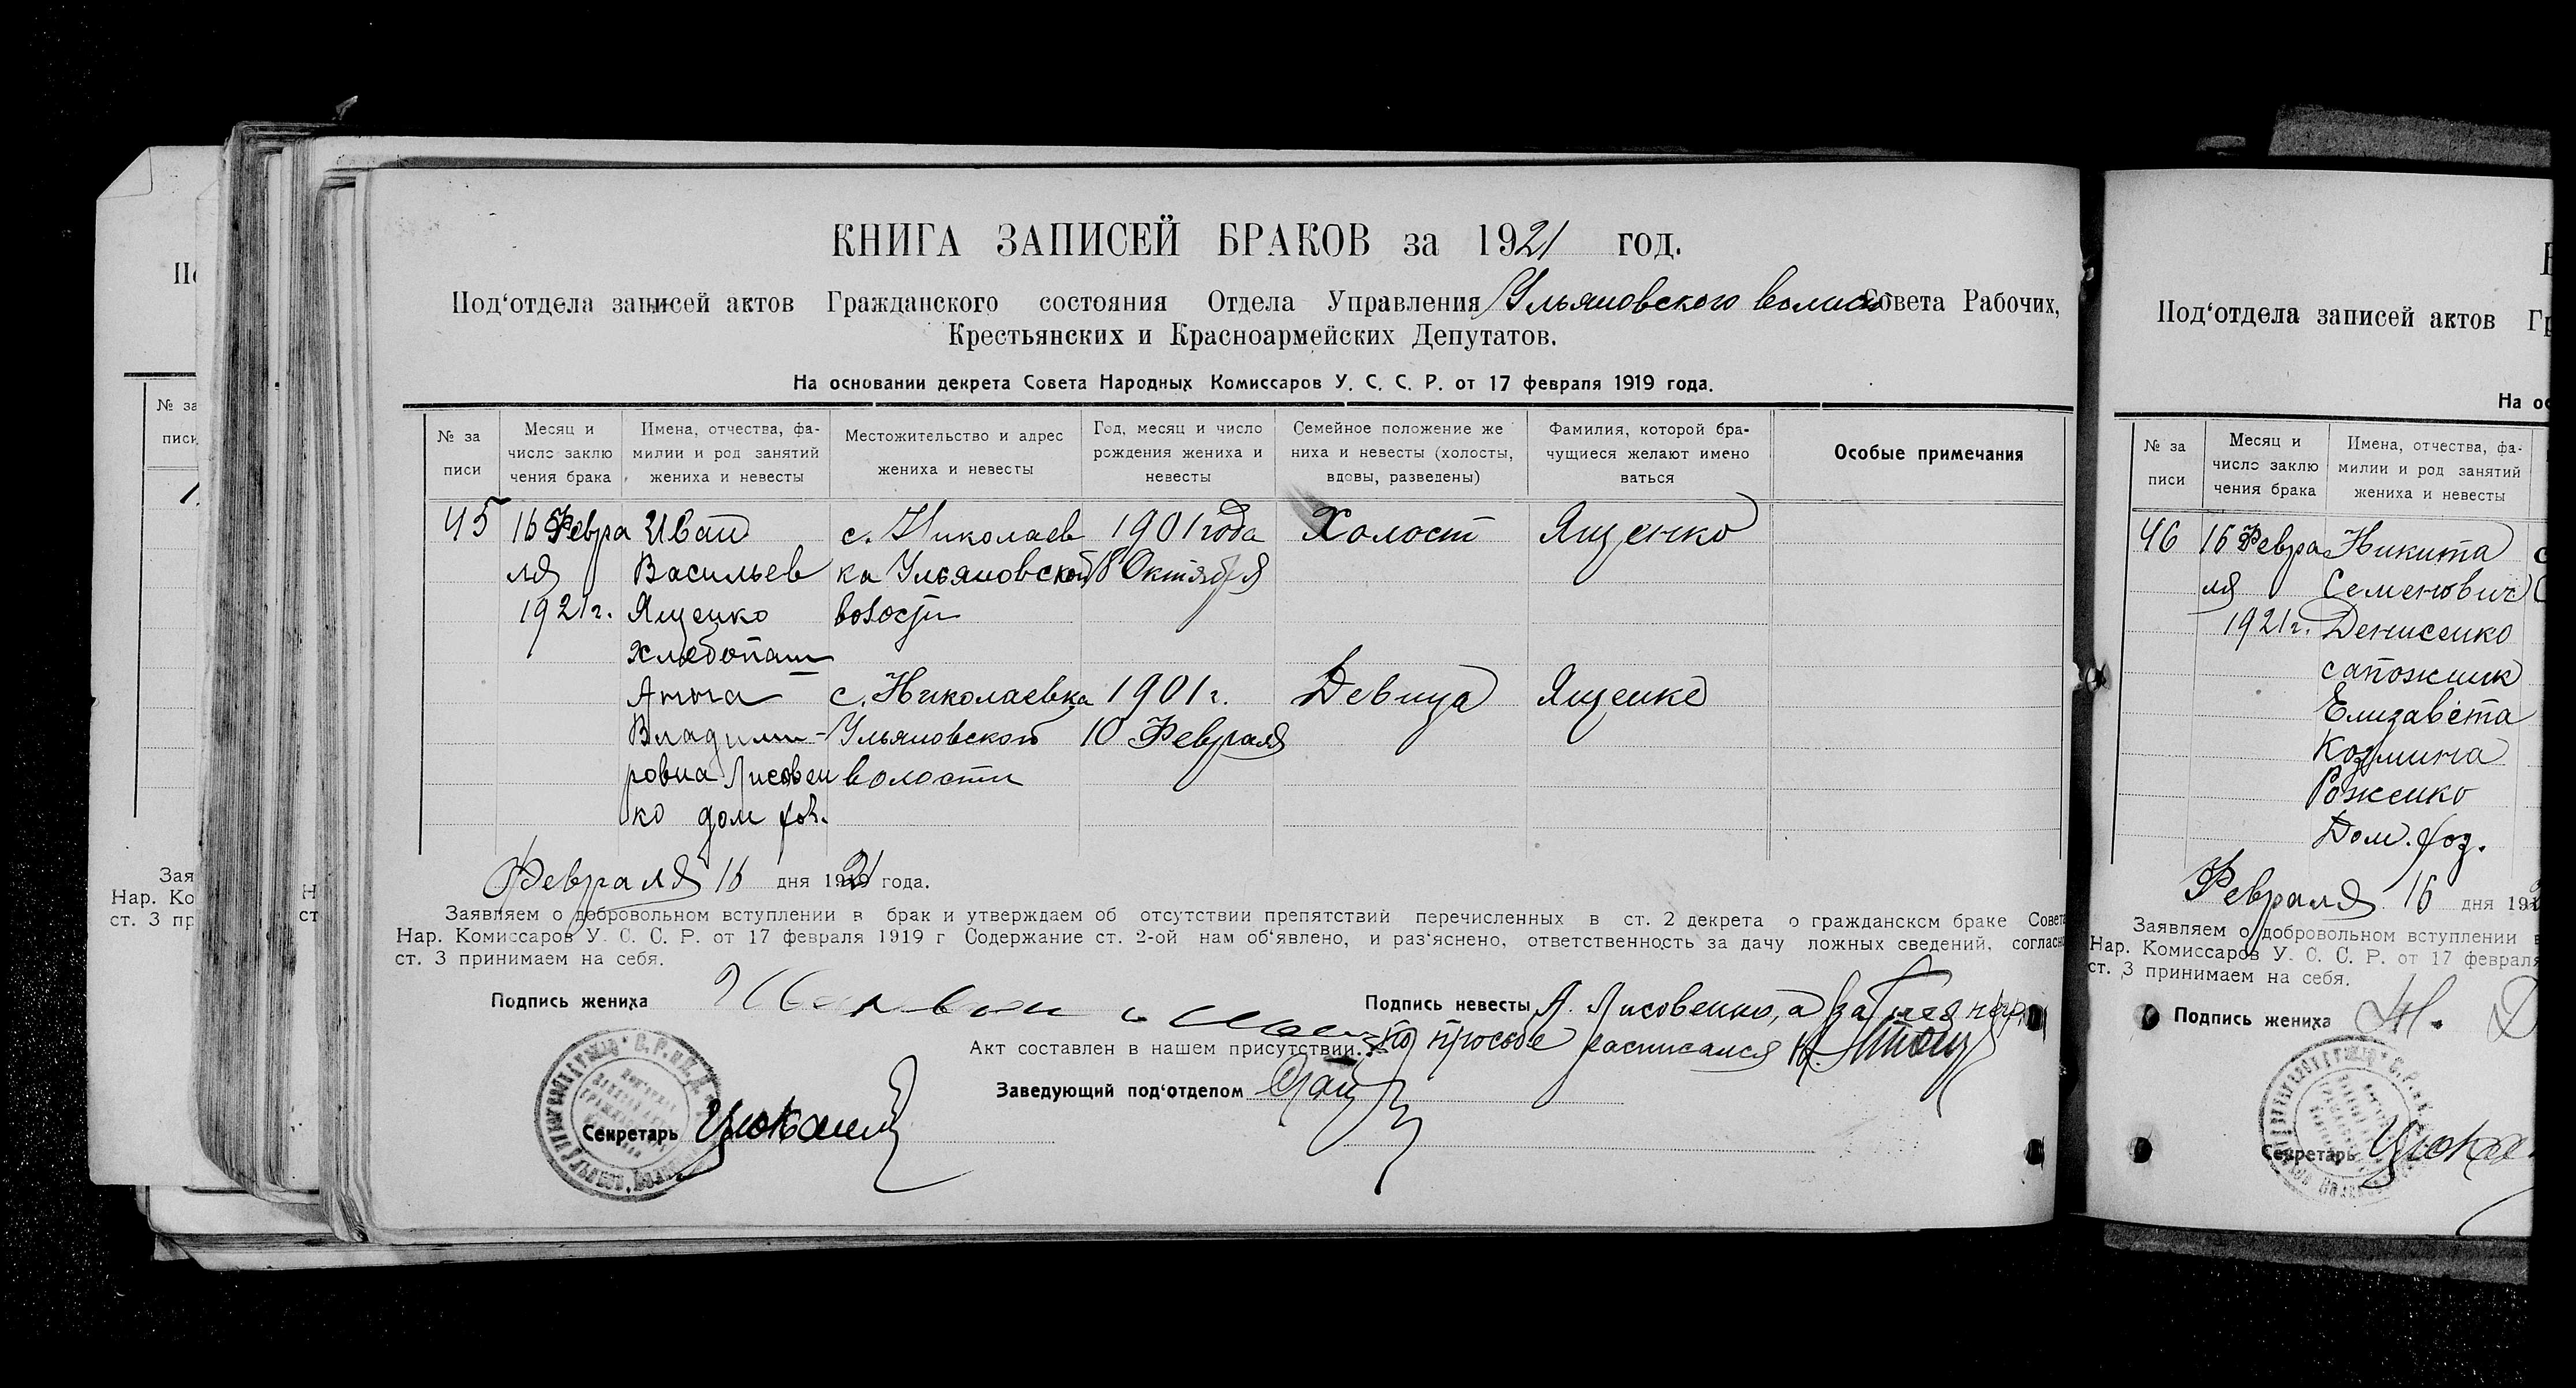 КНИГА ЗАПИСЕЙ БРАКОВ за 1921 год.
Под‘отдела записей актов Гражданского состояния Отдела Управления Ульяновского волисп Совета Рабочих,
Крестьянских и Красноармейских Депутатов.
На основании декрета Совета Народных Комиссаров У. С. С. Р. от 17 февраля 1919 года.
№ за
писи
Месяц и
число заклю
чения брака
Имена, отчества, фа-
милии и род занятий
жениха и невесты
Местожительство и адрес
жениха и невесты
Год, месяц и число
рождения жениха и
невесты
Семейное положение же
ниха и невесты (холосты,
вдовы, разведены)
Фамилия, которой бра-
чущиеся желают имено
ваться
Особые примечания
45
16 Февра
ля
1921 г.
Иван
Васильев
Ященко
хлебопаш
с. Николаев
ка Ульяновской
волости
1901 года
8 Октября
Холост
Ященко
Анна
Владими-
ровна Лисовен
ко дом хоз.
с. Николаевка
Ульяновской
волости
1901 г.
10 Февраля
Девица
Ященко
Февраля 16 дня 1921 года.
Заявляем о добровольном вступлении в брак и утверждаем об отсутствии препятствий перечисленных в ст. 2 декрета о гражданском браке Совета
Нар. Комиссаров У. С. С. Р. от 17 февраля 1919 г Содержание ст. 2-ой нам об‘явлено, и раз‘яснено, ответственность за дачу ложных сведений, согласно
ст. 3 принимаем на себя.
Подпись жениха
Подпись невесты А. Лисовенко, а за нея негр.
по прособе расписался
Акт составлен в нашем присутствии.
Заведующий под‘отделом
Секретарь
Под‘отдела записей актов Гр
На ос
№ за
писи
Месяц и
число заклю
чения брака
Имена, отчества, фа-
милии и род занятий
жениха и невесты
46
16 Февра
ля
1921 г.
Никита
Семенович
Денисенко
сапожник
Елизавета
Козмина
Роженко
Дом. хоз.
Февраля 16 дня 192
Заявляем о добровольном вступлении в
Нар. Комиссаров У. С. С. Р. от 17 февраля
ст. 3 принимаем на себя.
Подпись жениха
Секретарь
№ за
писи
Зая
Нар. Ко
ст. 3 пр